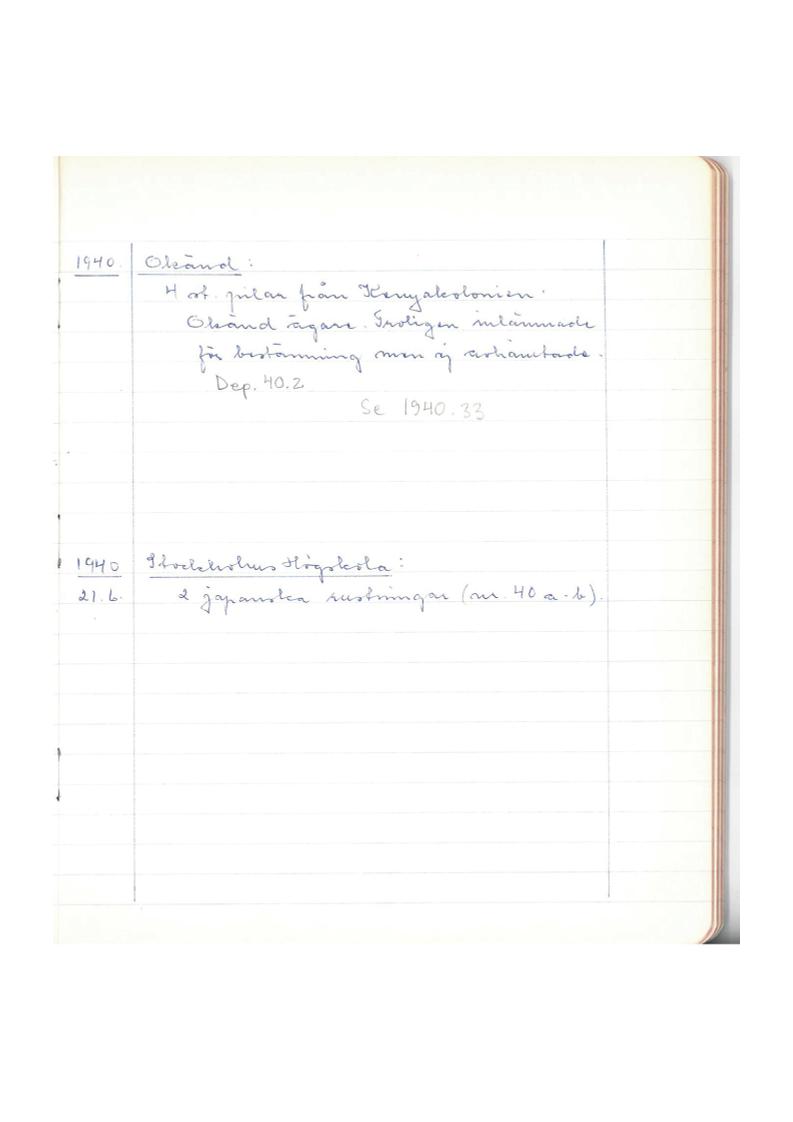 1940. Okänd:
4 st. pilar från Kenyakolonien.
Okänd ägare. Troligen inlämnade
för bestämning men ej avhämtade.
Dep. 40.2
Se 1940.33
1940 Stockholms Högskola:
21.6. 2 japanska rustningar (nr. 40 a-b).